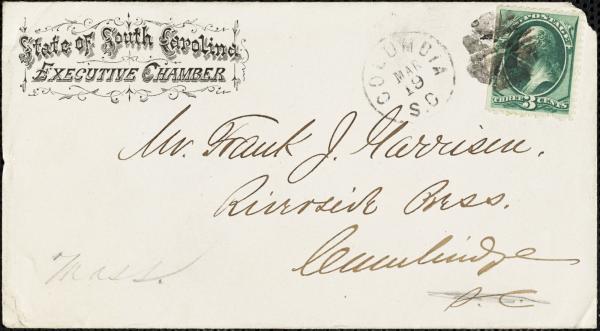 State of South Carolina
EXECUTIVE CHAMBER
COLUMBIA
MAR
19
S.C.
U.S. POSTAGE
THREE 3 CENTS
Mr. Frank J. Garrison,
Riverside Press.
Cambridge
S.C.
Mass.